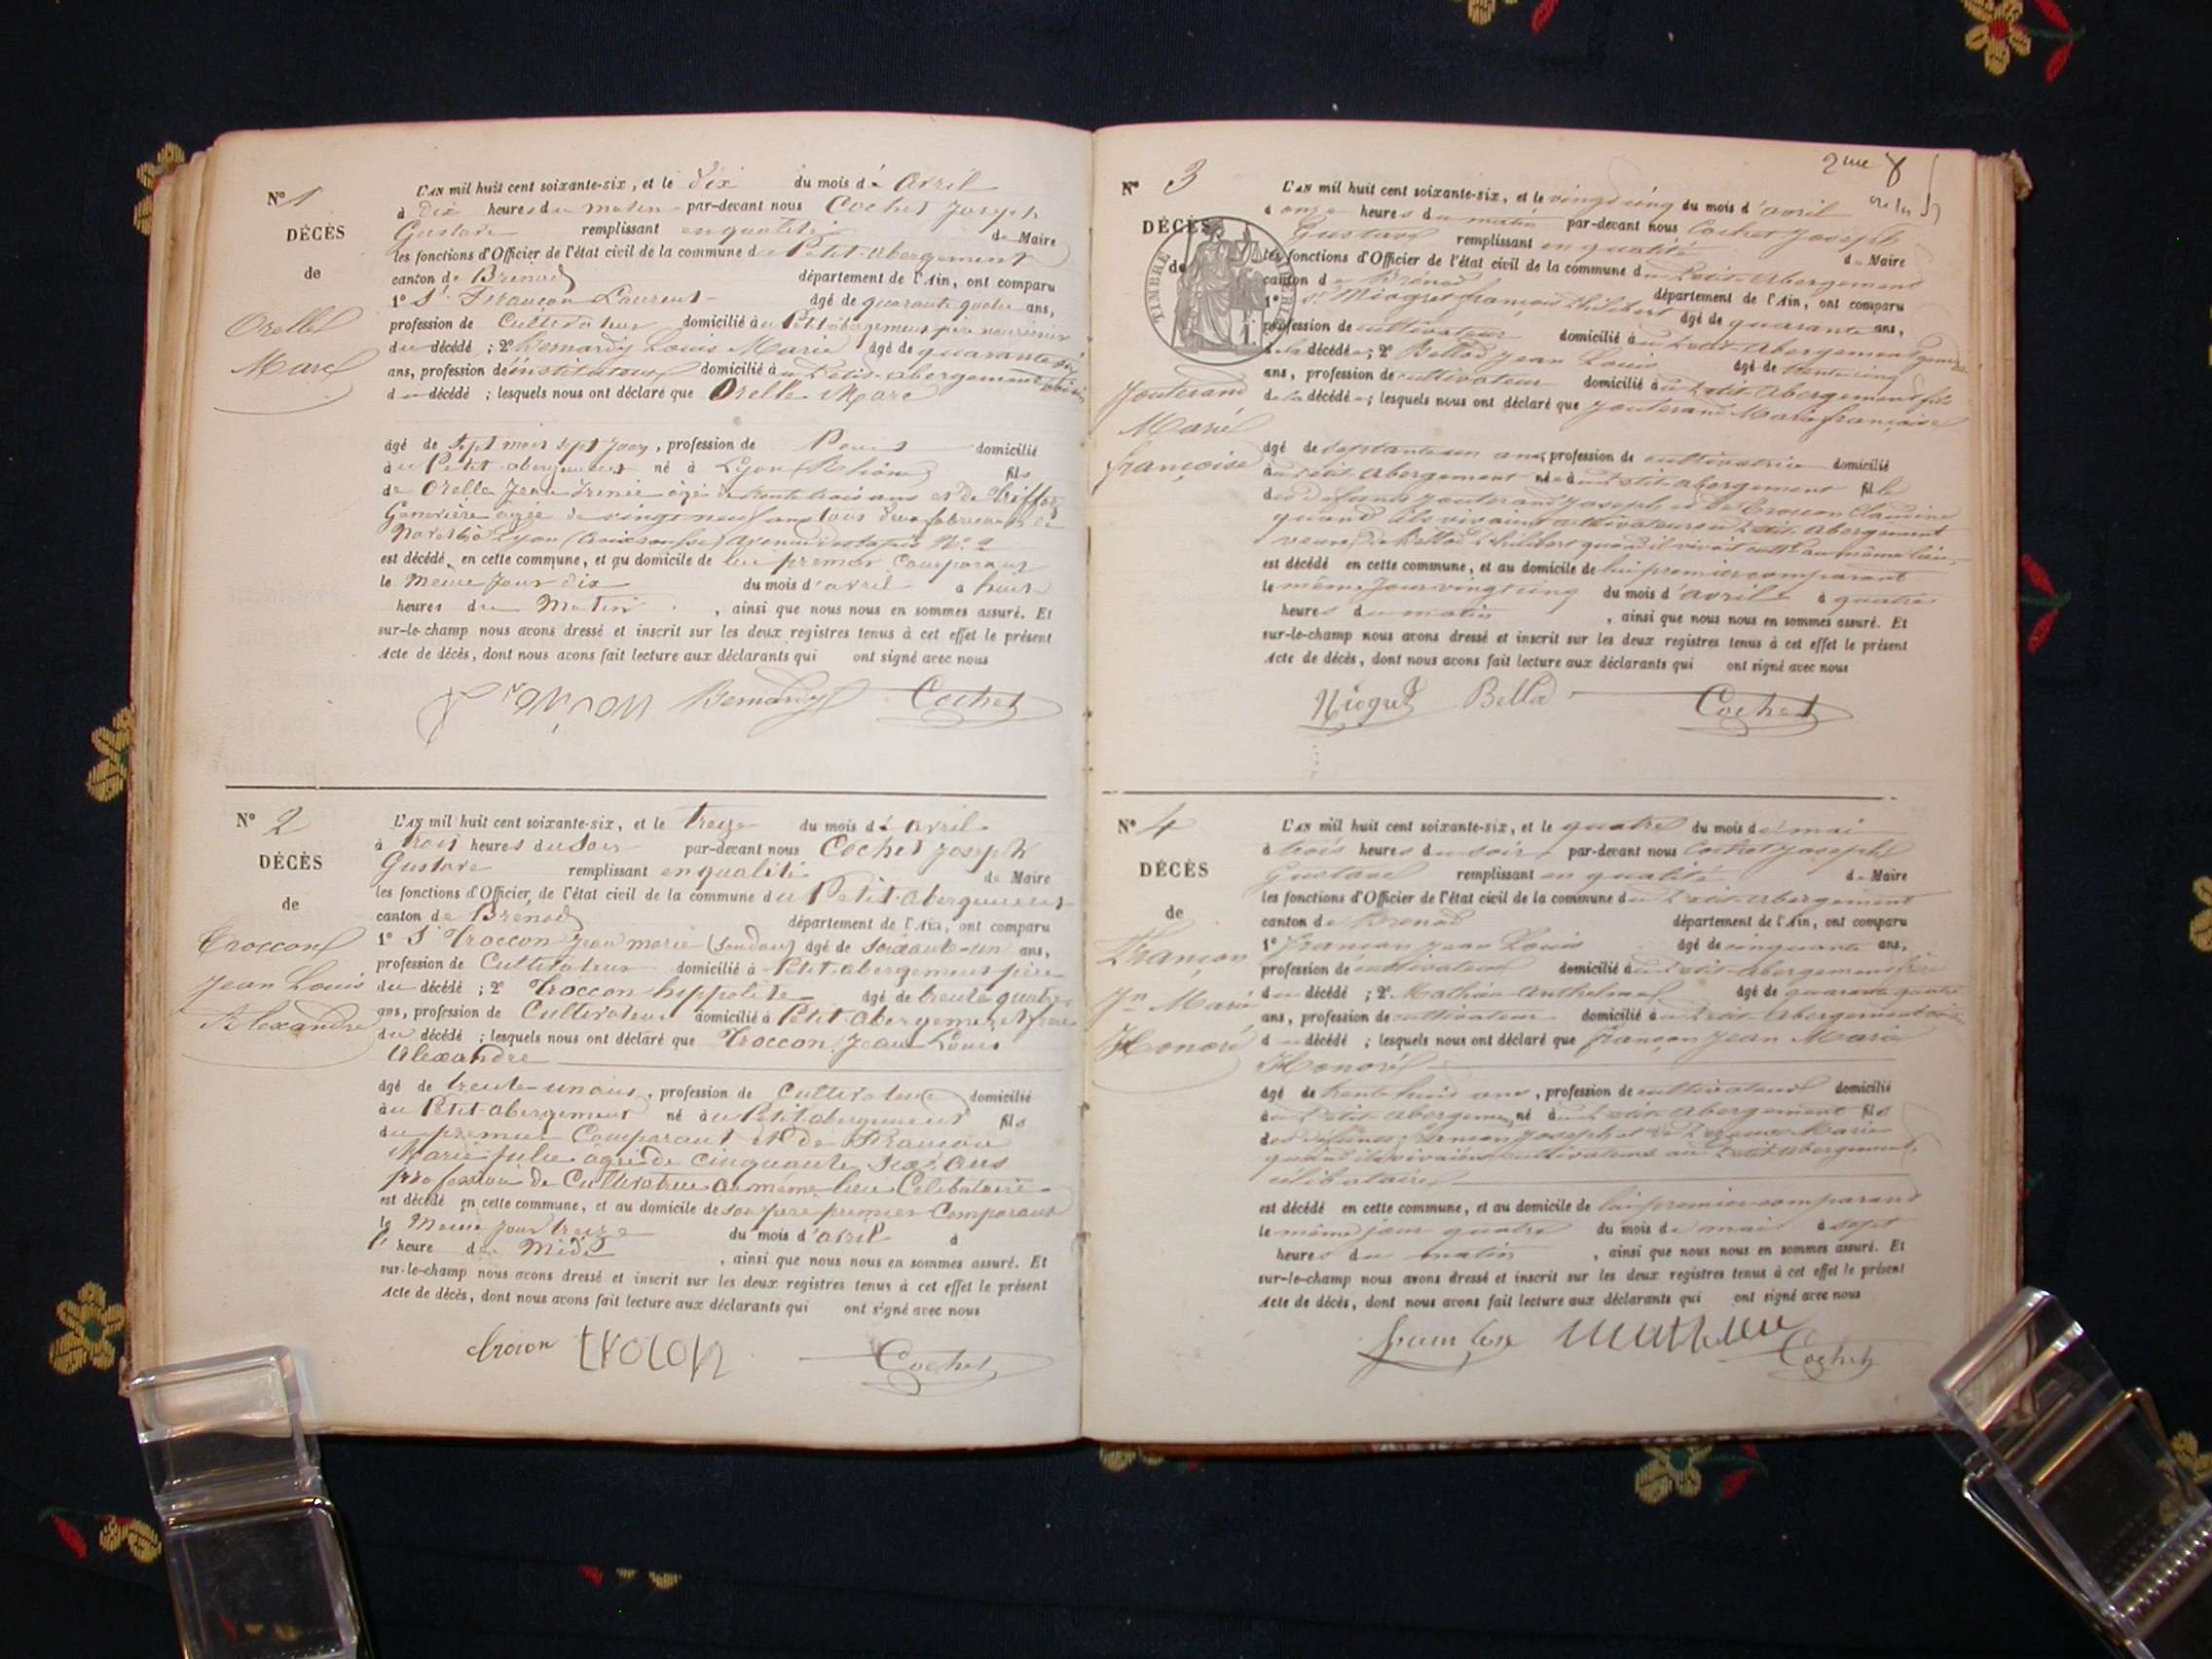 N° 1
DÉCÈS
de
Orelle
Marc
L'AN mil huit cent soixante-six, et le dix du mois d'Avril
à Dix heures du matin par-devant nous Cochet Joseph
Gustave remplissant en qualité de Maire
les fonctions d'Officier de l'état civil de la commune du Petit-abergement
canton de Brenod département de l'Ain, ont comparu
1° Sr Françon Laurent âgé de quarante quatre ans,
profession de Cultivateur domicilié au Petit abergement père nourricier
du décédé ; 2° Bernardy Louis Marie âgé de quarante six
ans, profession d'instituteur domicilié au Petit-abergement voisin
du décédé ; lesquels nous ont déclaré que Orelle Marc
âgé de sept mois sept jours, profession de domicilié
au Petit abergement né à Lyon (Rhône) fils
de Orelle Jean Irénée âgé de trente trois ans et de
Genevière agée de vingt neuf ans tous deux fabricants de
à Lyon (Croix rousse)
est décédé en cette commune, et au domicile de lui premier Comparant
le même jour dix du mois d'avril à huit
heures du Matin , ainsi que nous nous en sommes assuré. Et
sur-le-champ nous avons dressé et inscrit sur les deux registres tenus à cet effet le présent
Acte de décès, dont nous avons fait lecture aux déclarants qui ont signé avec nous
françon Bernardy Cochet
N° 2
DÉCÈS
de
Troccon
Jean Louis
Alexandre
L'AN mil huit cent soixante-six, et le treize du mois d'Avril
à trois heures du soir par-devant nous Cochet Joseph
Gustave remplissant en qualité de Maire
les fonctions d'Officier de l'état civil de la commune du Petit-abergement
canton de Brenod département de l'Ain, ont comparu
1° Sr Troccon Jean marie âgé de soixante-un ans,
profession de Cultivateur domicilié à Petit-abergement père
du décédé ; 2° Troccon hippolite âgé de trente quatre
ans, profession de Cultivateur domicilié à Petit-abergement frère
du décédé ; lesquels nous ont déclaré que Troccon Jean Louis
Alexandre
âgé de trente-un ans, profession de Cultivateur domicilié
au Petit abergement né au Petit abergement fils
du premier Comparant et de Françon
Marie Julie agée de cinquante six ans
profession de Cultivatrice au même lieu Célibataire
est décédé en cette commune, et au domicile de son père premier Comparant
le Même jour treize du mois d'avril à
l' heure de Midi , ainsi que nous nous en sommes assuré. Et
sur-le-champ nous avons dressé et inscrit sur les deux registres tenus à cet effet le présent
Acte de décès, dont nous avons fait lecture aux déclarants qui ont signé avec nous
trocon trocon Cochet
2me 8
N° 3
DÉCÈS
de
TIMBRE IMPERIAL
Jouterand
Marie
françoise
L'AN mil huit cent soixante-six, et le vingt cinq du mois d'avril
à onze heures du matin par-devant nous Cochet Joseph
Gustave remplissant en qualité de Maire
les fonctions d'Officier de l'état civil de la commune du Petit-Abergement
canton de Brénod département de l'Ain, ont comparu
1° Sr Niogret françois Philibert âgé de quarante ans,
profession de cultivateur domicilié au Petit-Abergement gendre
de la décédée ; 2° Bellod Jean Louis âgé de trente cinq
ans, profession de cultivateur domicilié au Petit Abergement fils
de la décédée ; lesquels nous ont déclaré que Jouterand Marie françoise
âgé de septante un ans, profession de cultivatrice domicilié
au Petit-Abergement née au Petit-abergement fille
des défunts Jouterand Joseph et de Troccon Claudine
quand ils vivaient cultivateurs au Petit-Abergement
veuve de Bellod Philibert quand il vivait cultr au même lieu
est décédé en cette commune, et au domicile de lui premier comparant
le même jour vingt cinq du mois d'avril à quatre
heures du matin , ainsi que nous nous en sommes assuré. Et
sur-le-champ nous avons dressé et inscrit sur les deux registres tenus à cet effet le présent
Acte de décès, dont nous avons fait lecture aux déclarants qui ont signé avec nous
Niogret Bellod Cochet
N° 4
DÉCÈS
de
Françon
Jn Marie
Honoré
L'AN mil huit cent soixante-six, et le quatre du mois de mai
à trois heures du soir par-devant nous Cochet Joseph
Gustave remplissant en qualité de Maire
les fonctions d'Officier de l'état civil de la commune du Petit-Abergement
canton de Brenod département de l'Ain, ont comparu
1° françon Jean Louis âgé de cinquante ans,
profession de cultivateur domicilié au Petit-abergement frère
du décédé ; 2° Mathieu Anthelme âgé de quarante quatre
ans, profession de cultivateur domicilié au Petit-Abergement voisin
du décédé ; lesquels nous ont déclaré que françon Jean Marie
Honoré
âgé de trente huit ans, profession de cultivateur domicilié
au Petit-Abergement né au Petit-Abergement fils
des défunts françon Joseph et de Marie
quand ils vivaient cultivateurs au Petit-Abergement,
célibataire
est décédé en cette commune, et au domicile de lui premier comparant
le même jour quatre du mois de mai à sept
heures du matin , ainsi que nous nous en sommes assuré. Et
sur-le-champ nous avons dressé et inscrit sur les deux registres tenus à cet effet le présent
Acte de décès, dont nous avons fait lecture aux déclarants qui ont signé avec nous
mathieu
Cochet